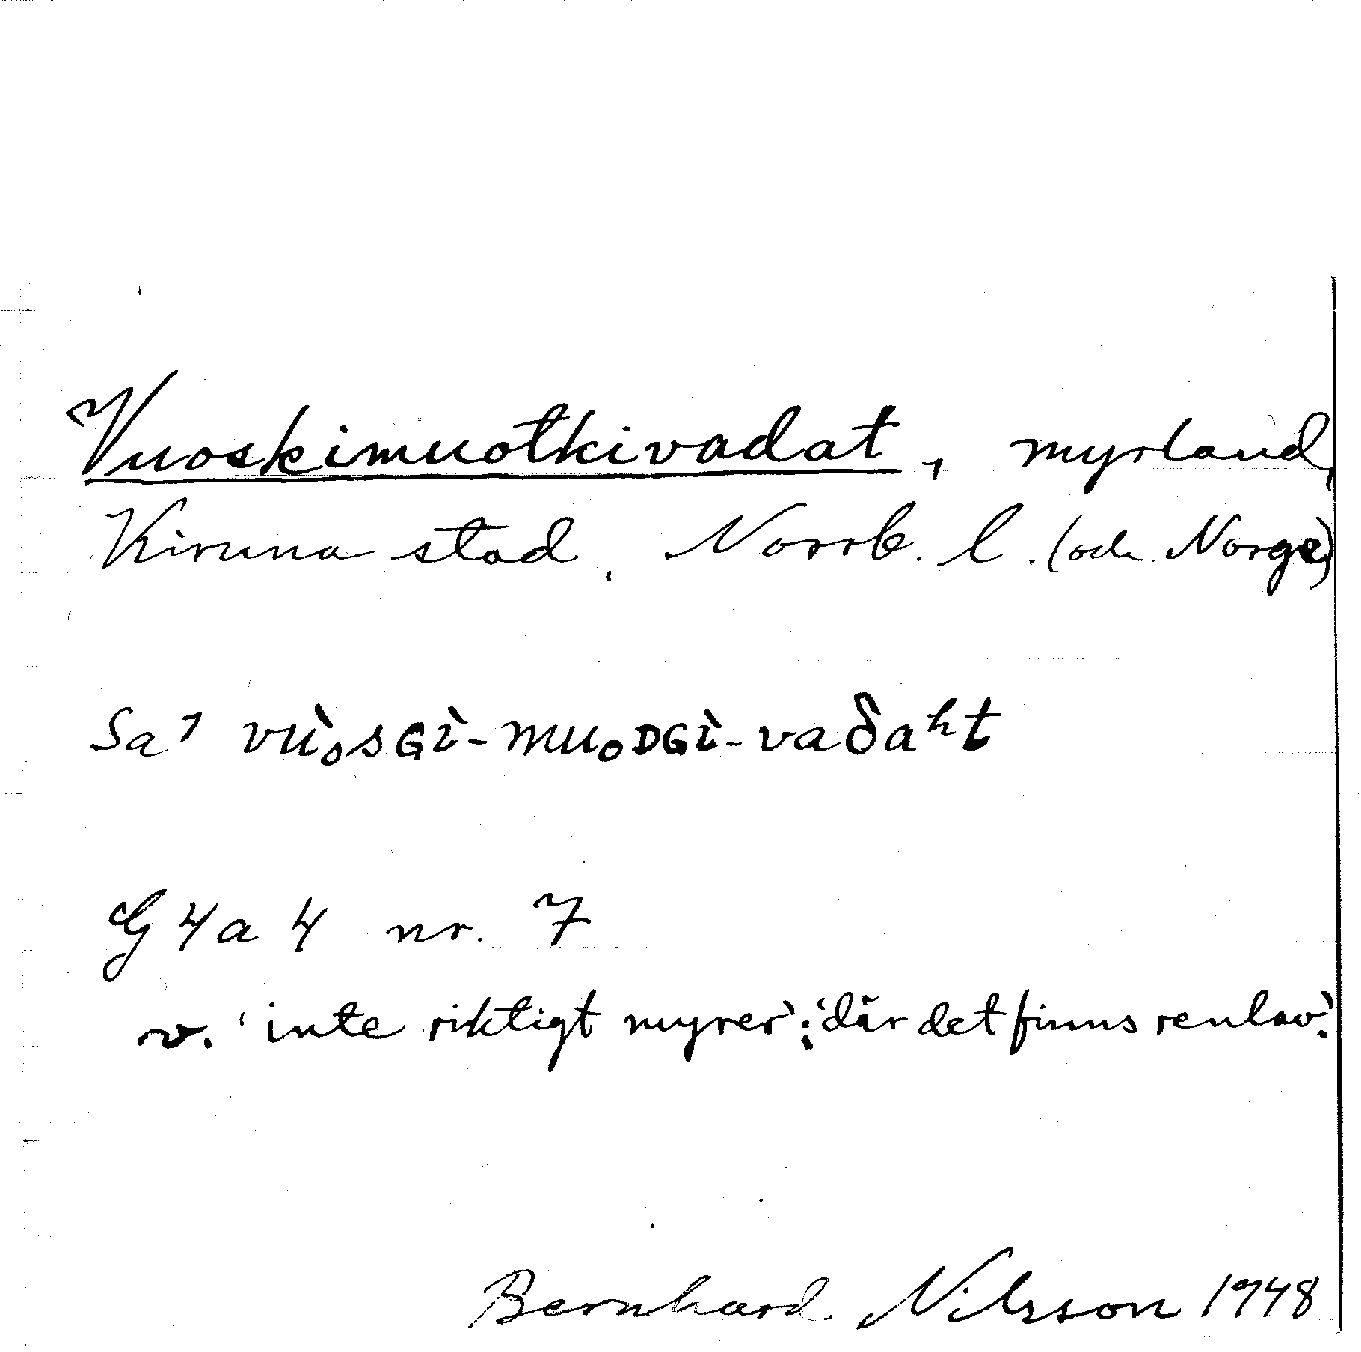 Vuoskimuotkivadat, myrland,
Kiruna stad, Norrb. l. (och Norge)
Sa⁷ vùₒsGì-muₒDGì-vaδaʰt
G 4a 4 nr. 7
v. 'inte riktigt myrer'; 'där det finns renlav'.
Bernhard Nilsson 1948